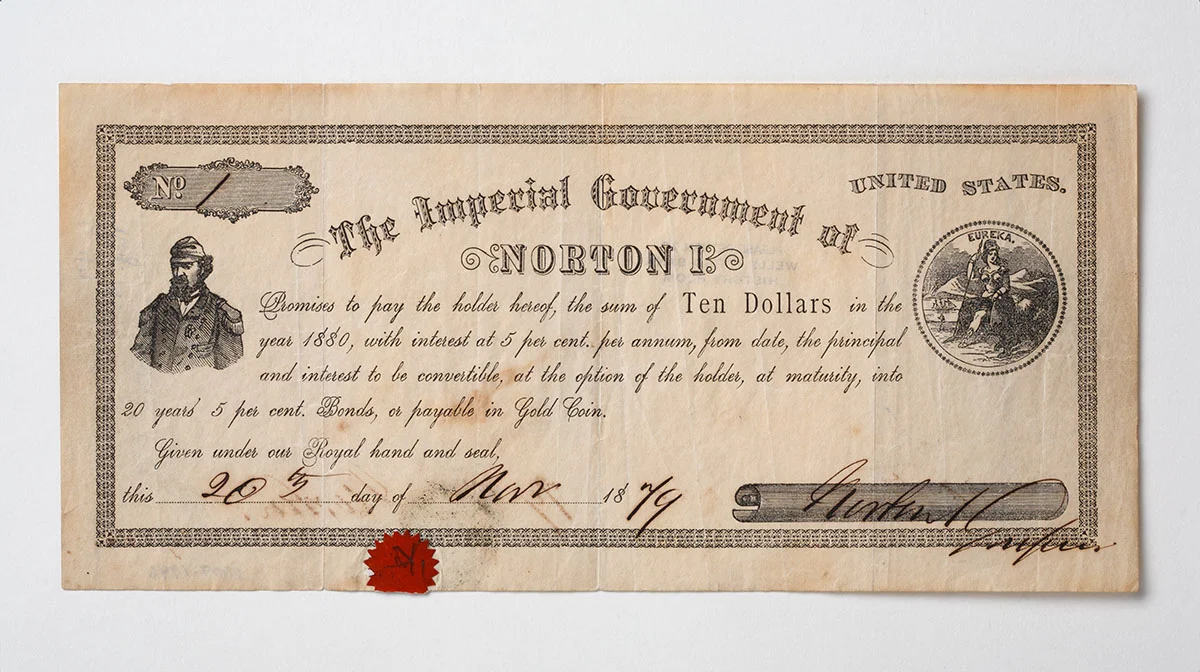 No 1
UNITED STATES.
The Imperial Government of
NORTON I.
EUREKA.
Promises to pay the holder hereof, the sum of Ten Dollars in the
year 1880, with interest at 5 per cent. per annum, from date, the principal
and interest to be convertible, at the option of the holder, at maturity, into
20 years' 5 per cent. Bonds, or payable in Gold Coin.
Given under our Royal hand and seal,
this 20th day of Nov 1879
Norton I